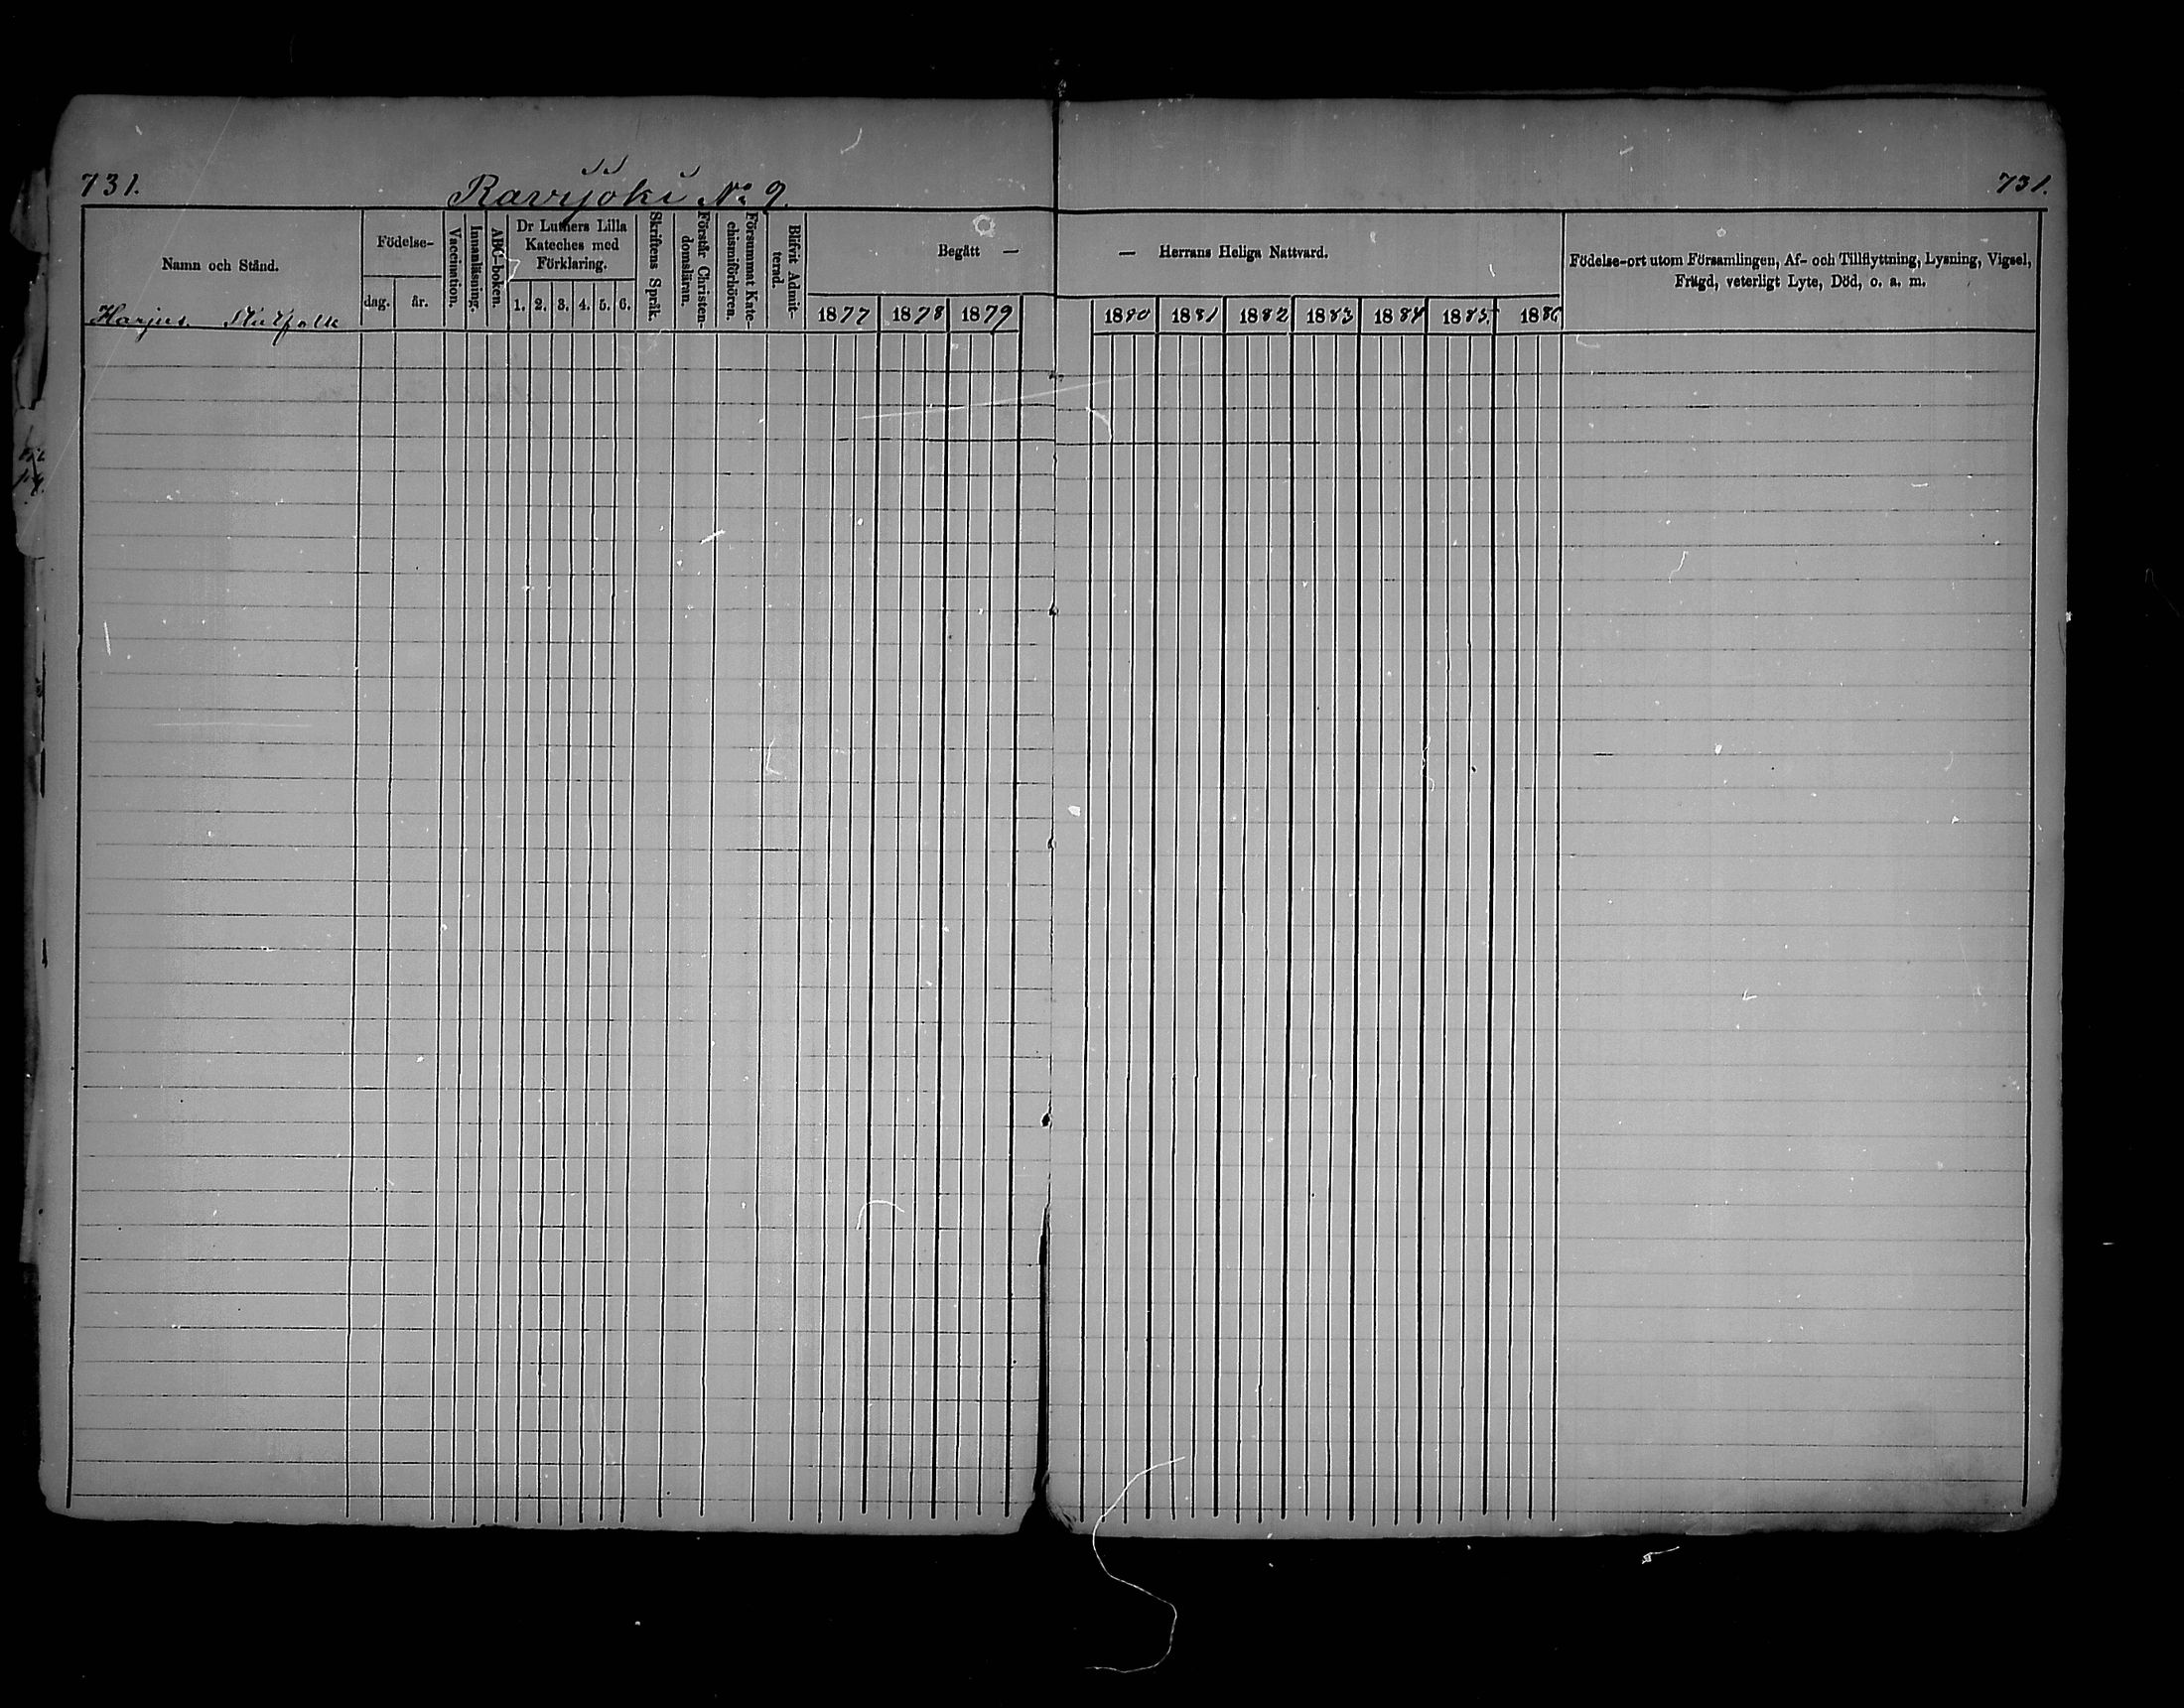 731.
Ravijoki No 9.
731.
Namn och Stånd.
Harjus.
Födelse-
dag.
år.
Vaccination.
Innanläsning.
ABC-boken.
Dr Luthers Lilla
Kateches med
Förklaring.
1. 2. 3. 4. 5. 6.
Skriftens Språk.
Förstår Christen-
domsläran.
Försummat Kate-
chismiförhören.
Blifvit Admit-
terad.
Begått —
1877 1878 1879
— Herrans Heliga Nattvard.
1880 1881 1882 1883 1884 1885 1886
Födelse-ort utom Församlingen, Af- och Tillflyttning, Lysning, Vigsel,
Frägd, veterligt Lyte, Död, o. a. m.